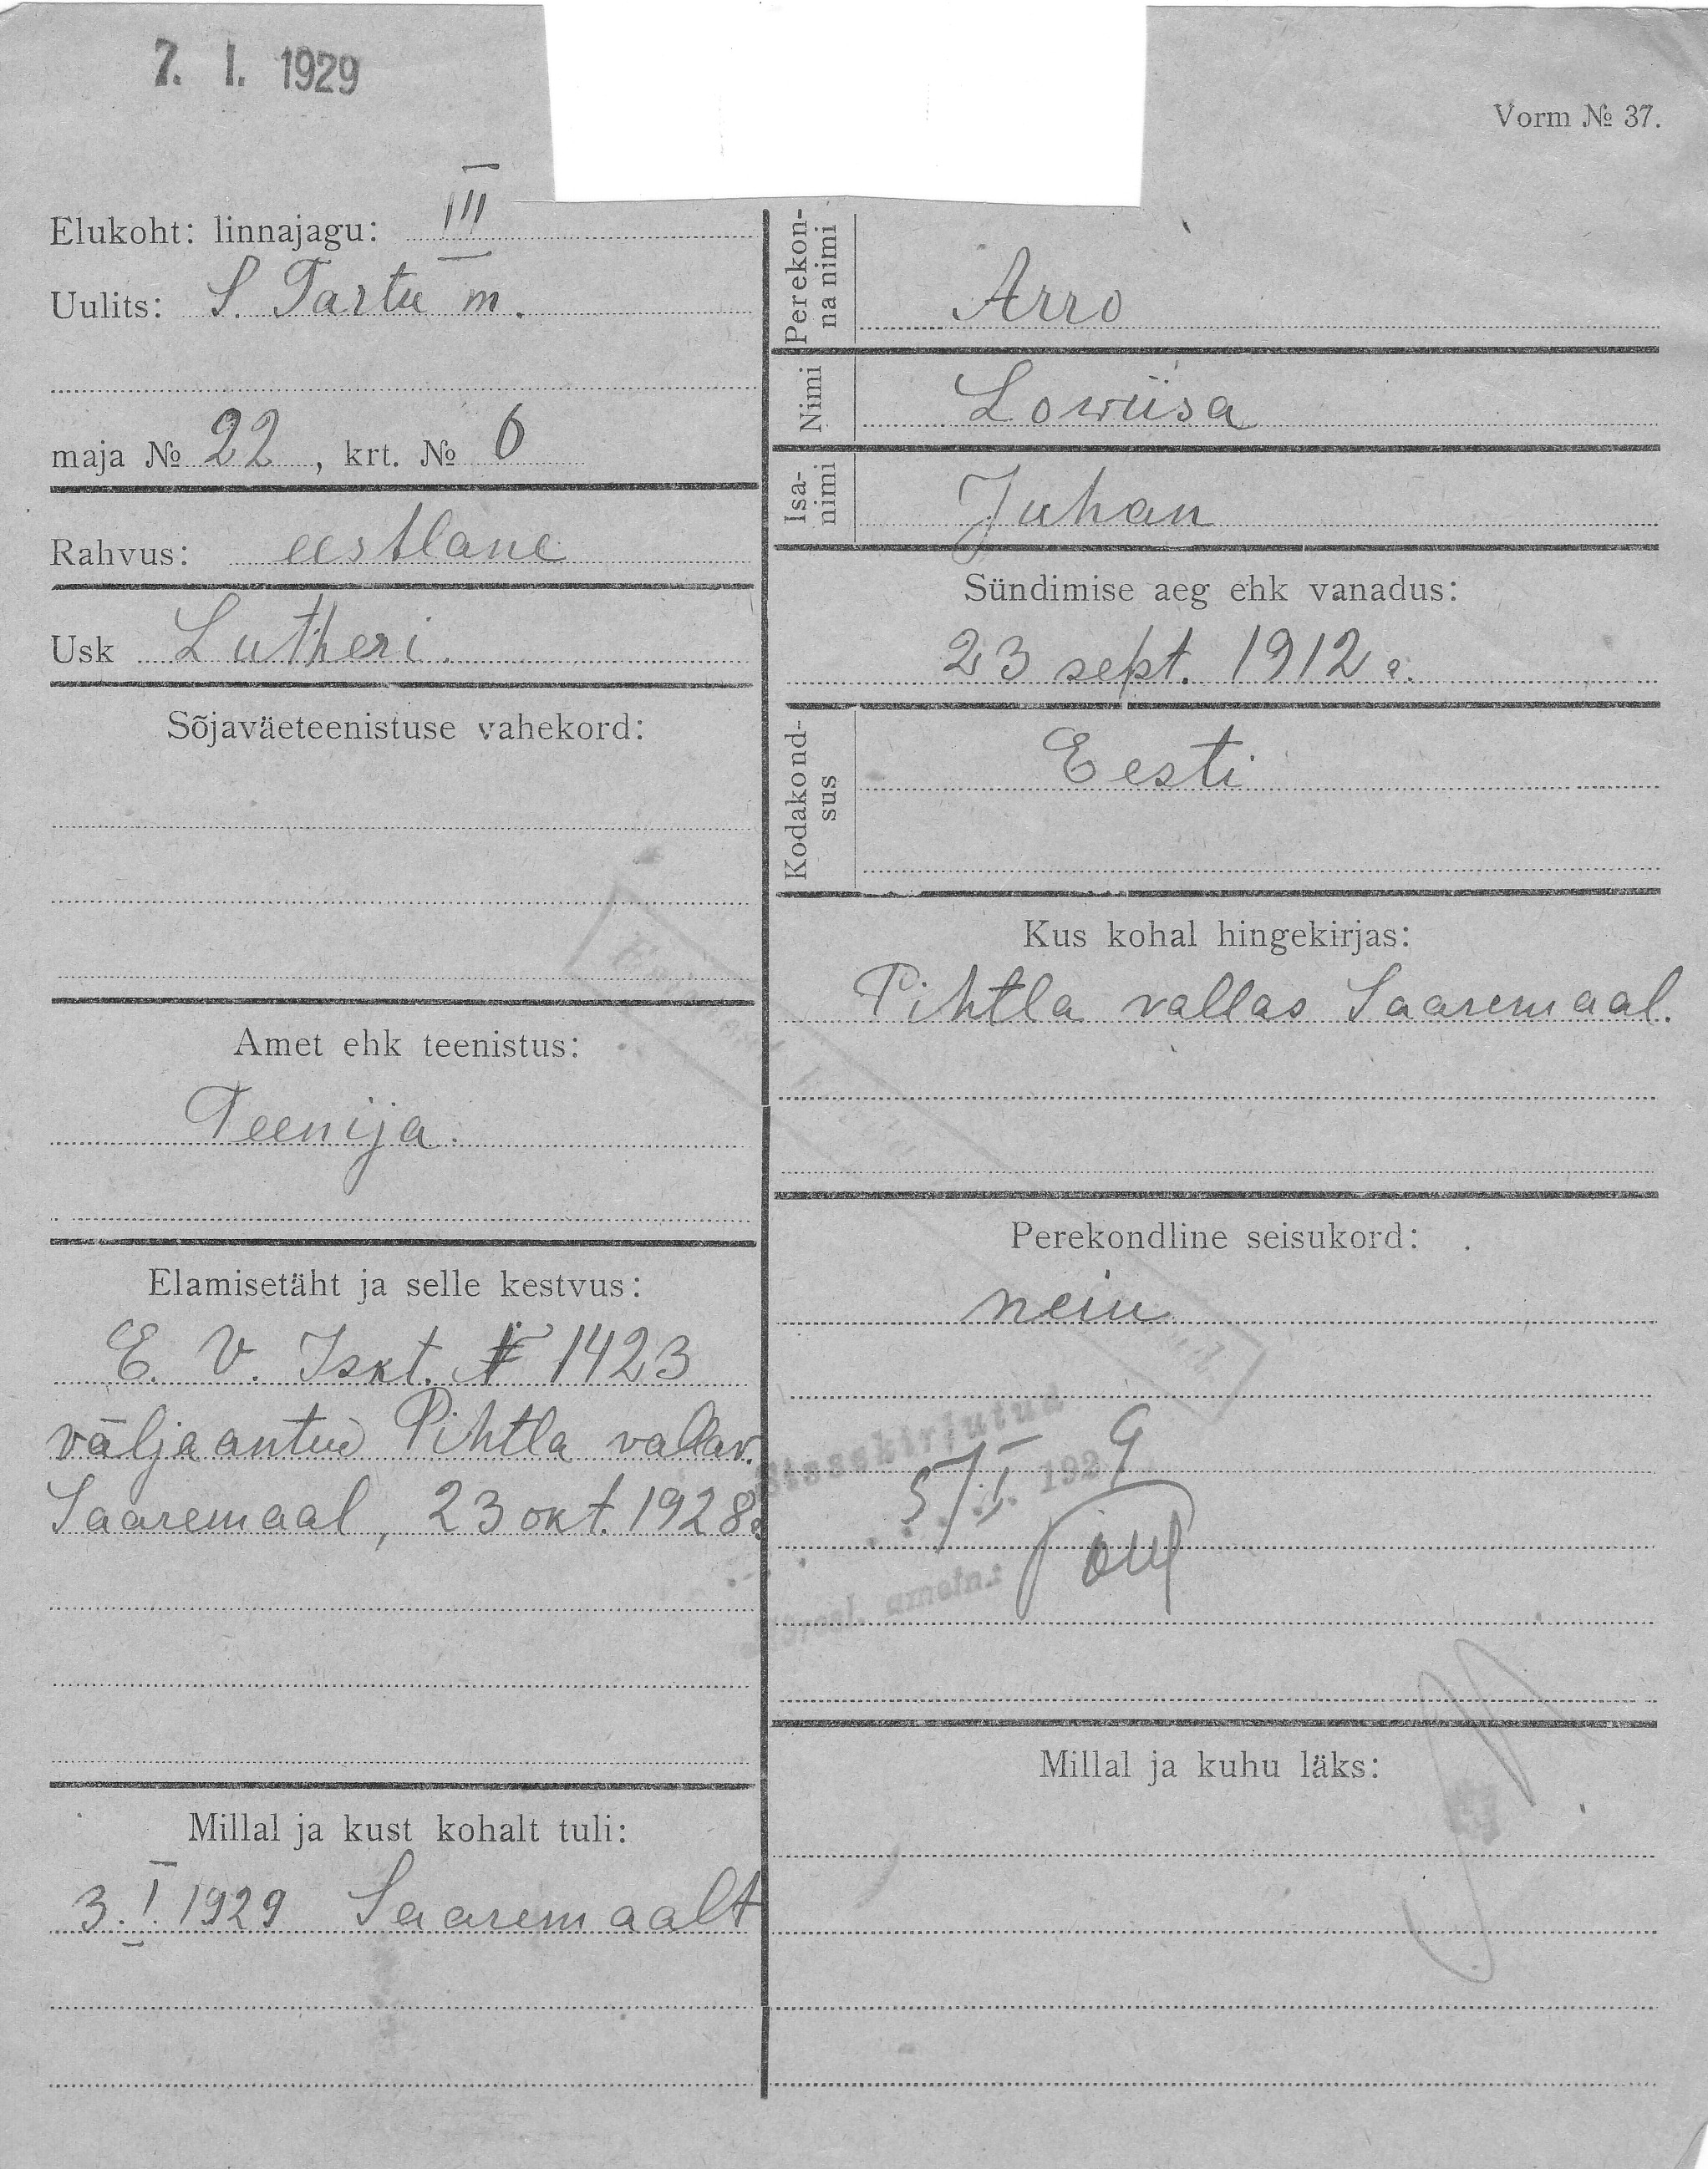 7. I. 1929
Vorm № 37.
Elukoht: linnajagu: III
Uulits: S. Tartu m.
maja № 22, krt. № 6
Rahvus: eestlane
Usk Lutheri.
Sõjaväeteenistuse vahekord:
Amet ehk teenistus:
Teenija.
Elamisetäht ja selle kestvus:
E. V. Iskt. № 1423
välja antud Pihtla vallav.
Saaremaal, 23 okt. 1928 a
Millal ja kust kohalt tuli:
3. I. 1929 Saaremaalt
Perekon-
na nimi
Arro
Nimi
Lowiisa
Isa-
nimi
Juhan
Sündimise aeg ehk vanadus:
23 sept. 1912 a.
Kodakond-
sus
Eesti
Kus kohal hingekirjas:
Pihtla vallas Saaremaal.
Perekondline seisukord:
neiu
Sissekirjutud
5/I 1929
ametn.:
Millal ja kuhu läks: